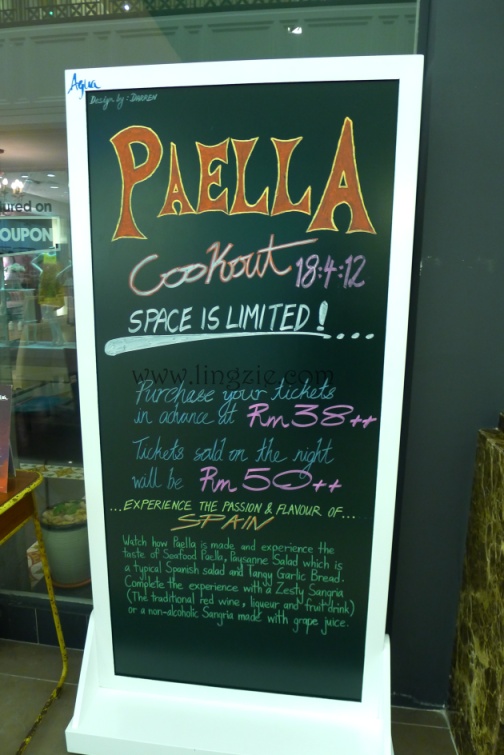 Aqua
Design by: DARREN
PAELLA
Cookout 18:4:12
SPACE IS LIMITED!....
www.lingzie.com
Purchase your tickets
in advance at Rm38++
Tickets sold on the right
will be Rm50++
...EXPERIENCE THE PASSION & FLAVOUR OF...
SPAIN
Watch how Paella is made and experience the
taste of Seafood Paella, Paysanne Salad which is
a typical Spanish salad and Tangy Garlic Bread.
Complete the experience with a Zesty Sangria
(The traditional red wine, liqueur and fruit drink)
or a non-alcoholic Sangria made with grape juice.
ured on
OUPON